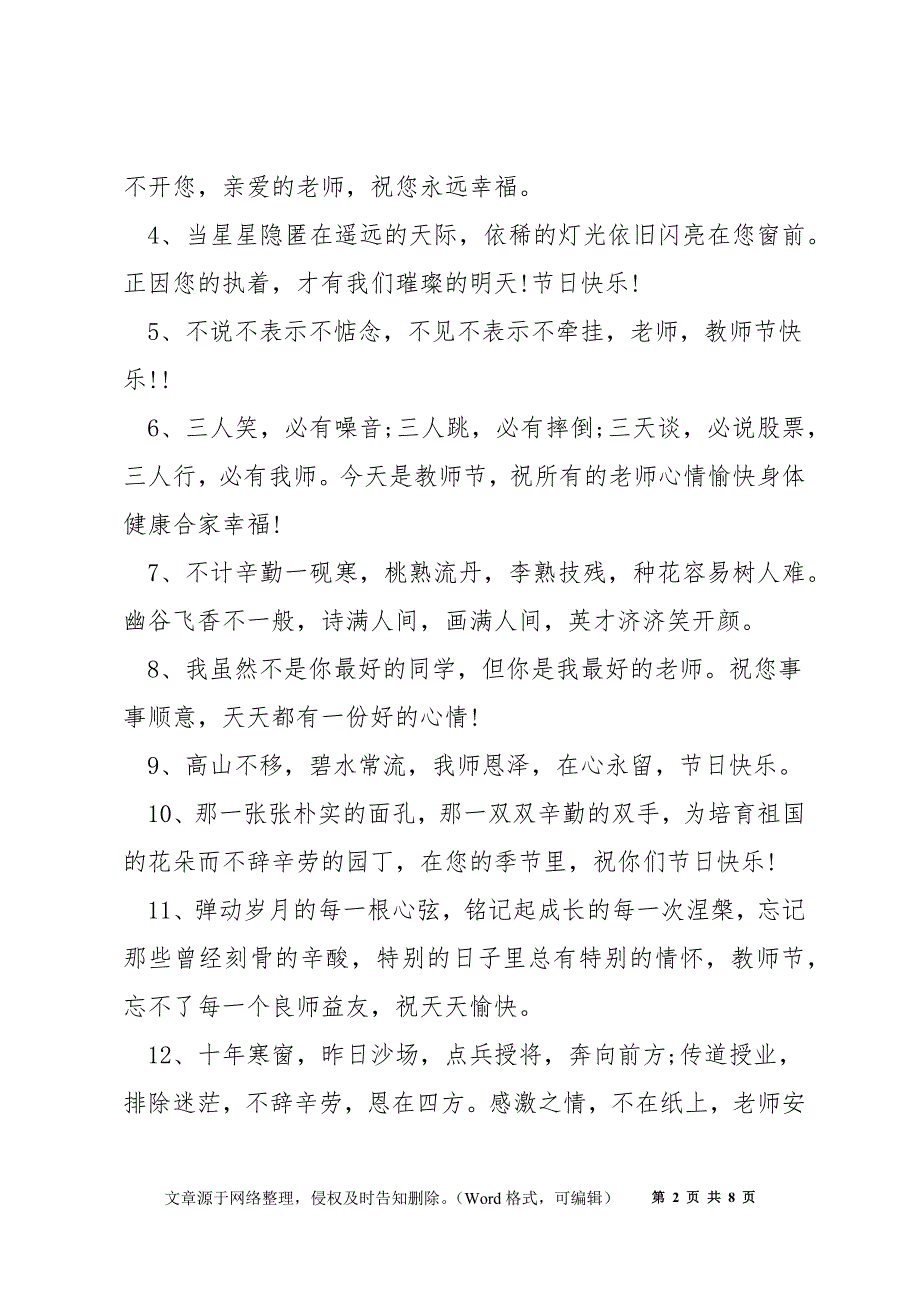 不开您，亲爱的老师，祝您永远幸福。
4、当星星隐匿在遥远的天际，依稀的灯光依旧闪亮在您窗前。
正因您的执着，才有我们璀璨的明天!节日快乐!
5、不说不表示不惦念，不见不表示不牵挂，老师，教师节快
乐!!
6、三人笑，必有噪音;三人跳，必有摔倒;三天谈，必说股票，
三人行，必有我师。今天是教师节，祝所有的老师心情愉快身体
健康合家幸福!
7、不计辛勤一砚寒，桃熟流丹，李熟技残，种花容易树人难。
幽谷飞香不一般，诗满人间，画满人间，英才济济笑开颜。
8、我虽然不是你最好的同学，但你是我最好的老师。祝您事
事顺意，天天都有一份好的心情!
9、高山不移，碧水常流，我师恩泽，在心永留，节日快乐。
10、那一张张朴实的面孔，那一双双辛勤的双手，为培育祖国
的花朵而不辞辛劳的园丁，在您的季节里，祝你们节日快乐!
11、弹动岁月的每一根心弦，铭记起成长的每一次涅槃，忘记
那些曾经刻骨的辛酸，特别的日子里总有特别的情怀，教师节，
忘不了每一个良师益友，祝天天愉快。
12、十年寒窗，昨日沙场，点兵授将，奔向前方;传道授业，
排除迷茫，不辞辛劳，恩在四方。感激之情，不在纸上，老师安
文章源于网络整理，侵权及时告知删除。（Word 格式，可编辑） 第 2 页 共 8 页